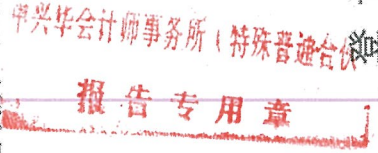 中兴华会计师事务所（特殊普通合伙
报告专用章